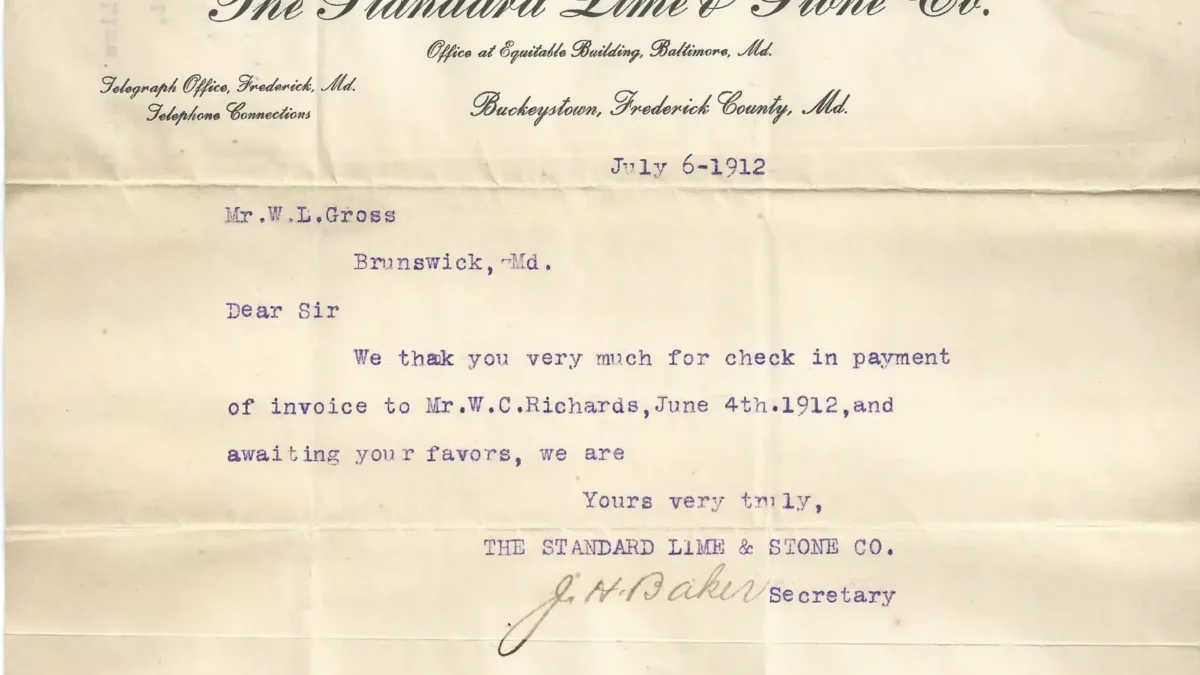 The Standard Lime & Stone Co.
Office at Equitable Building, Baltimore, Md.
Telegraph Office, Frederick, Md.
Telephone Connections
Buckeystown, Frederick County, Md.
July 6-1912
Mr.W.L.Gross
Brunswick, Md.
Dear Sir
We thak you very much for check in payment
of invoice to Mr.W.C.Richards,June 4th.1912,and
awaiting your favors, we are
Yours very truly,
THE STANDARD LIME & STONE CO.
J. H. Baker Secretary